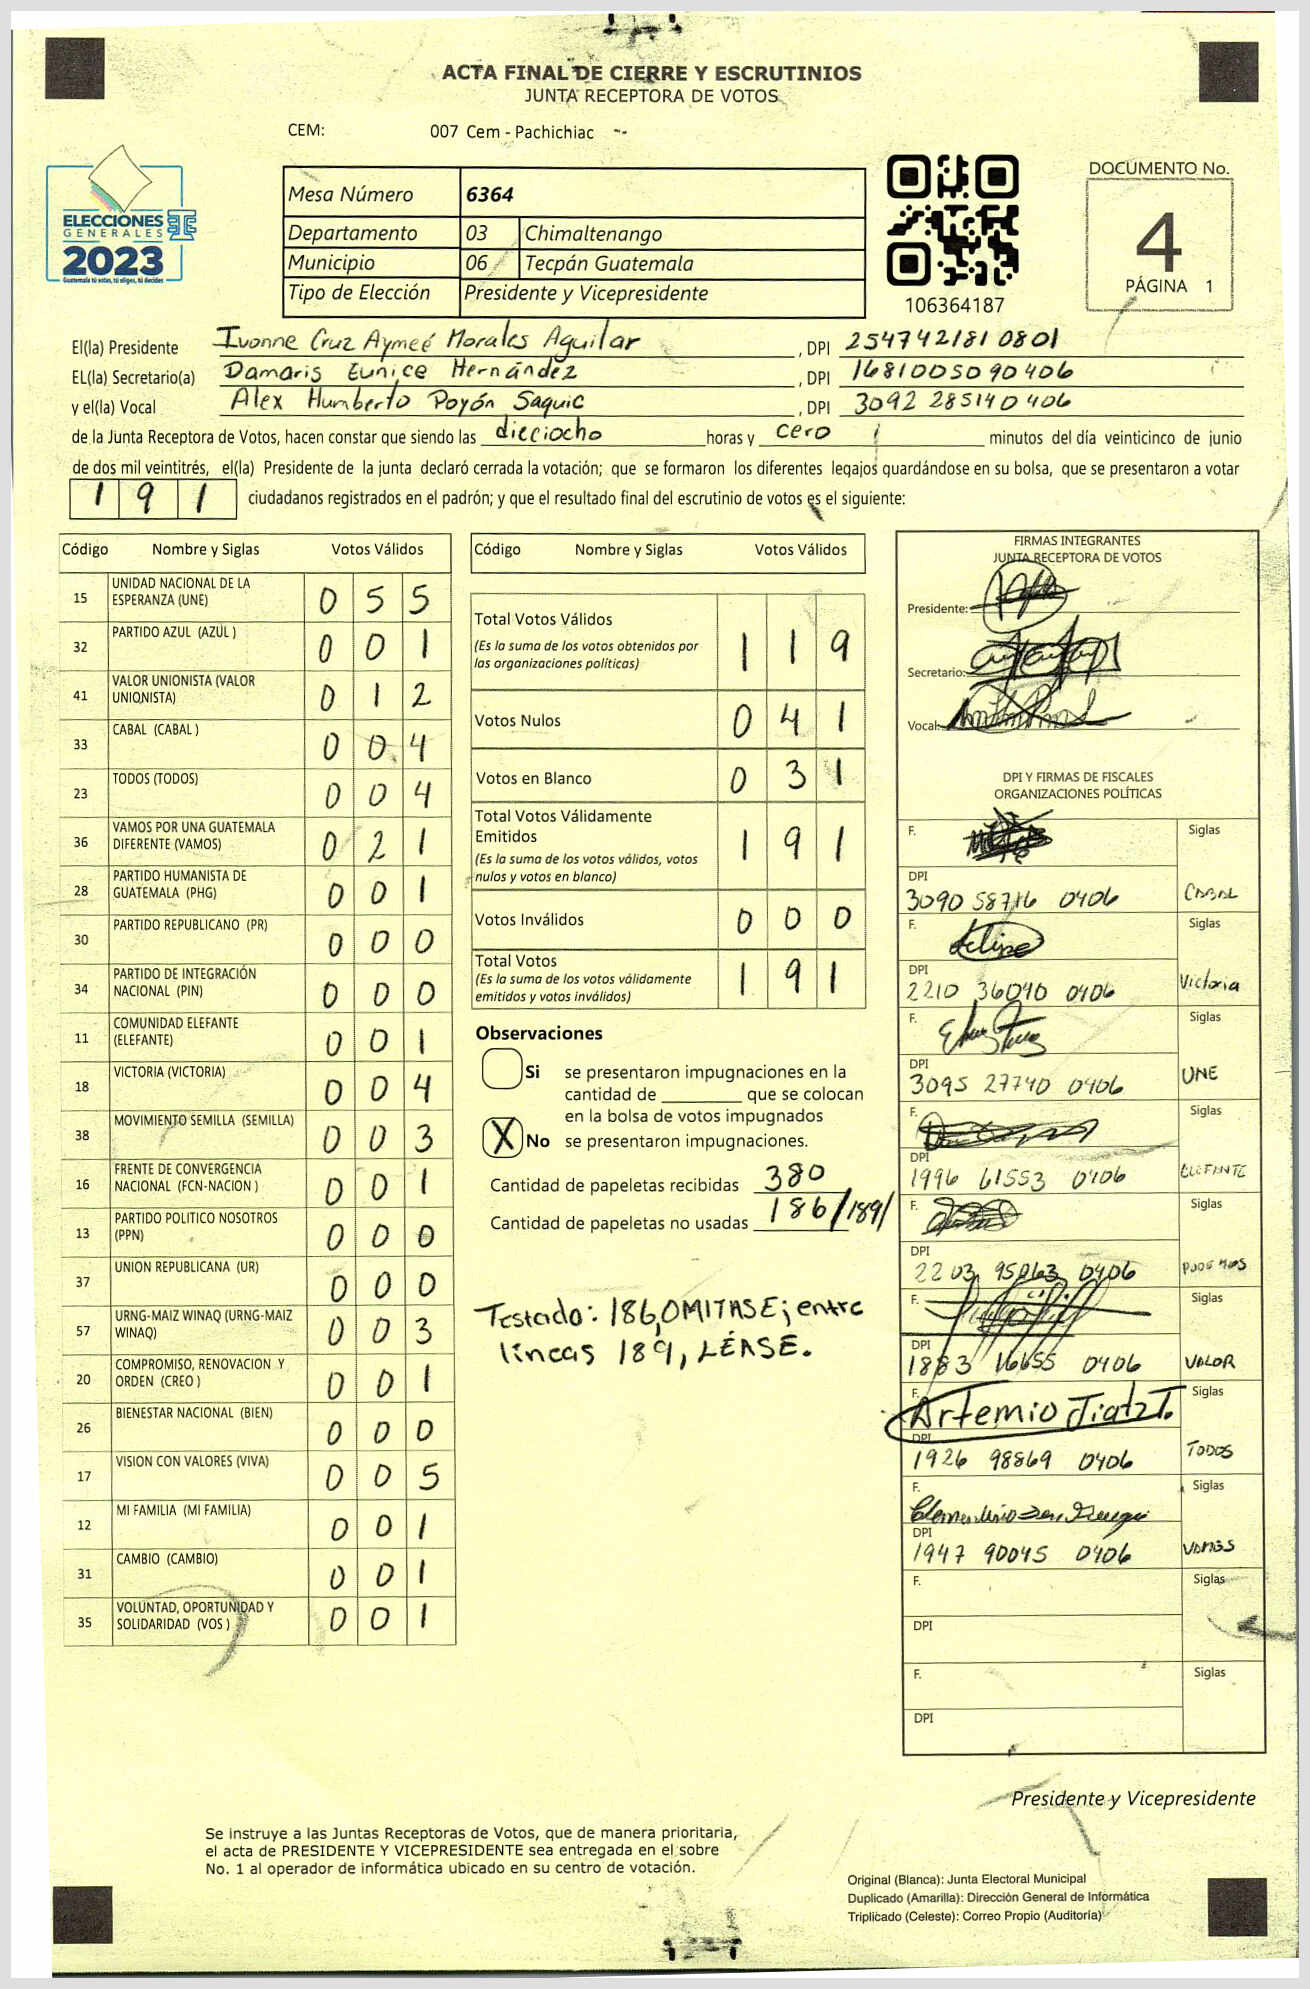 ACTA FINAL DE CIERRE Y ESCRUTINIOS
JUNTA RECEPTORA DE VOTOS
CEM: 007 Cem - Pachichiac --
ELECCIONES
GENERALES
2023
Guatemala tú votas, tú eliges, tú decides
Mesa Número 6364
Departamento 03 Chimaltenango
Municipio 06 Tecpán Guatemala
Tipo de Elección Presidente y Vicepresidente
106364187
DOCUMENTO No.
4
PÁGINA 1
El(la) Presidente Ivonne Cruz Aymeé Morales Aguilar, DPI 254742181 0801
EL(la) Secretario(a) Damaris Eunice Hernández, DPI 1681005090406
y el(la) Vocal Alex Humberto Poyón Saquic, DPI 3092 285140406
de la Junta Receptora de Votos, hacen constar que siendo las dieciocho horas y cero minutos del día veinticinco de junio
de dos mil veintitrés, el(la) Presidente de la junta declaró cerrada la votación; que se formaron los diferentes legajos guardándose en su bolsa, que se presentaron a votar
191 ciudadanos registrados en el padrón; y que el resultado final del escrutinio de votos es el siguiente:
Código Nombre y Siglas Votos Válidos
15 UNIDAD NACIONAL DE LA ESPERANZA (UNE) 055
32 PARTIDO AZUL (AZUL ) 001
41 VALOR UNIONISTA (VALOR UNIONISTA) 012
33 CABAL (CABAL ) 004
23 TODOS (TODOS) 004
36 VAMOS POR UNA GUATEMALA DIFERENTE (VAMOS) 021
28 PARTIDO HUMANISTA DE GUATEMALA (PHG) 001
30 PARTIDO REPUBLICANO (PR) 000
34 PARTIDO DE INTEGRACIÓN NACIONAL (PIN) 000
11 COMUNIDAD ELEFANTE (ELEFANTE) 001
18 VICTORIA (VICTORIA) 004
38 MOVIMIENTO SEMILLA (SEMILLA) 003
16 FRENTE DE CONVERGENCIA NACIONAL (FCN-NACION ) 001
13 PARTIDO POLITICO NOSOTROS (PPN) 000
37 UNION REPUBLICANA (UR) 000
57 URNG-MAIZ WINAQ (URNG-MAIZ WINAQ) 003
20 COMPROMISO, RENOVACION Y ORDEN (CREO ) 001
26 BIENESTAR NACIONAL (BIEN) 000
17 VISION CON VALORES (VIVA) 005
12 MI FAMILIA (MI FAMILIA) 001
31 CAMBIO (CAMBIO) 001
35 VOLUNTAD, OPORTUNIDAD Y SOLIDARIDAD (VOS ) 001
Código Nombre y Siglas Votos Válidos
Total Votos Válidos 119
(Es la suma de los votos obtenidos por
las organizaciones políticas)
Votos Nulos 041
Votos en Blanco 031
Total Votos Válidamente
Emitidos 191
(Es la suma de los votos válidos, votos
nulos y votos en blanco)
Votos Inválidos 000
Total Votos 191
(Es la suma de los votos válidamente
emitidos y votos inválidos)
Observaciones
Si se presentaron impugnaciones en la
cantidad de ________ que se colocan
en la bolsa de votos impugnados
X No se presentaron impugnaciones.
Cantidad de papeletas recibidas 380
Cantidad de papeletas no usadas 186/189/
Testado: 186,OMITASE; entre
líneas 189, LÉASE.
FIRMAS INTEGRANTES
JUNTA RECEPTORA DE VOTOS
Presidente:
Secretario:
Vocal:
DPI Y FIRMAS DE FISCALES
ORGANIZACIONES POLÍTICAS
F. Siglas
DPI
3090 58716 0406 CABAL
F. Felipe Siglas
DPI
2210 36040 0406 Victoria
F. Siglas
DPI
3095 27740 0406 UNE
F. Siglas
DPI
1996 61553 0406 ELEFANTE
F. Siglas
DPI
2203 95063 0406 PODEMOS
F. Siglas
DPI
1883 16655 0406 VALOR
F. Artemio Jiatz T. Siglas
DPI
1926 98869 0406 TODOS
F. Siglas
DPI
1947 90045 0406 VAMOS
F. Siglas
DPI
F. Siglas
DPI
Presidente y Vicepresidente
Se instruye a las Juntas Receptoras de Votos, que de manera prioritaria,
el acta de PRESIDENTE Y VICEPRESIDENTE sea entregada en el sobre
No. 1 al operador de informática ubicado en su centro de votación.
Original (Blanca): Junta Electoral Municipal
Duplicado (Amarilla): Dirección General de Informática
Triplicado (Celeste): Correo Propio (Auditoría)